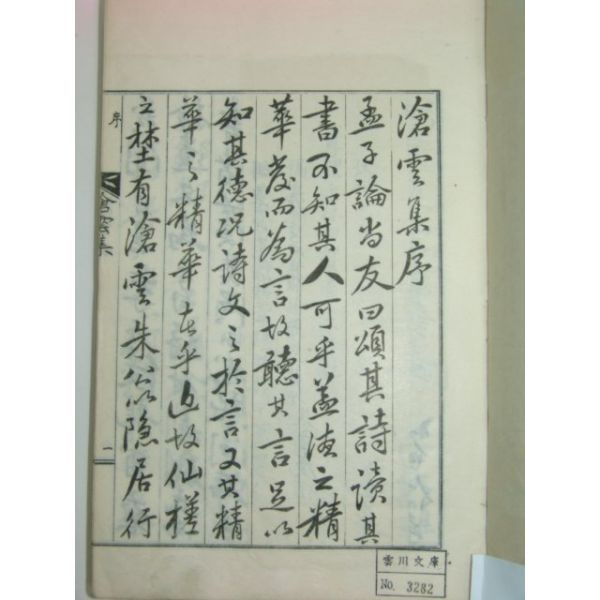 滄雲集序
孟子論尚友曰頌其詩讀其
書不知其人可乎盖德之精
華發而為言故聽其言足以
知其德况詩文之於言又其精
華之精華者乎近故仙槎
之埜有滄雲朱公隐居行
序
滄雲集
一
雲川文庫
No. 3282